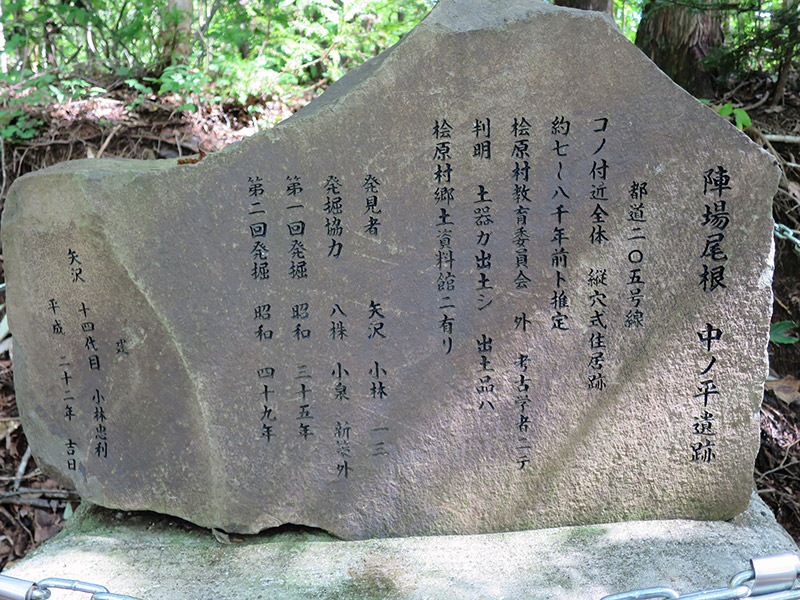 陣場尾根 中ノ平遺跡
都道二〇五号線
コノ付近全体 縦穴式住居跡
約七〜八千年前ト推定
桧原村教育委員会 外 考古学者ニテ
判明 土器ガ出土シ 出土品ハ
桧原村郷土資料館ニ有リ
発見者 矢沢 小林 一三
発掘協力 八株 小泉 新築外
第一回発掘 昭和 三十五年
第二回発掘 昭和 四十九年
建
矢沢 十四代目 小林忠利
平成 二十二年 吉日